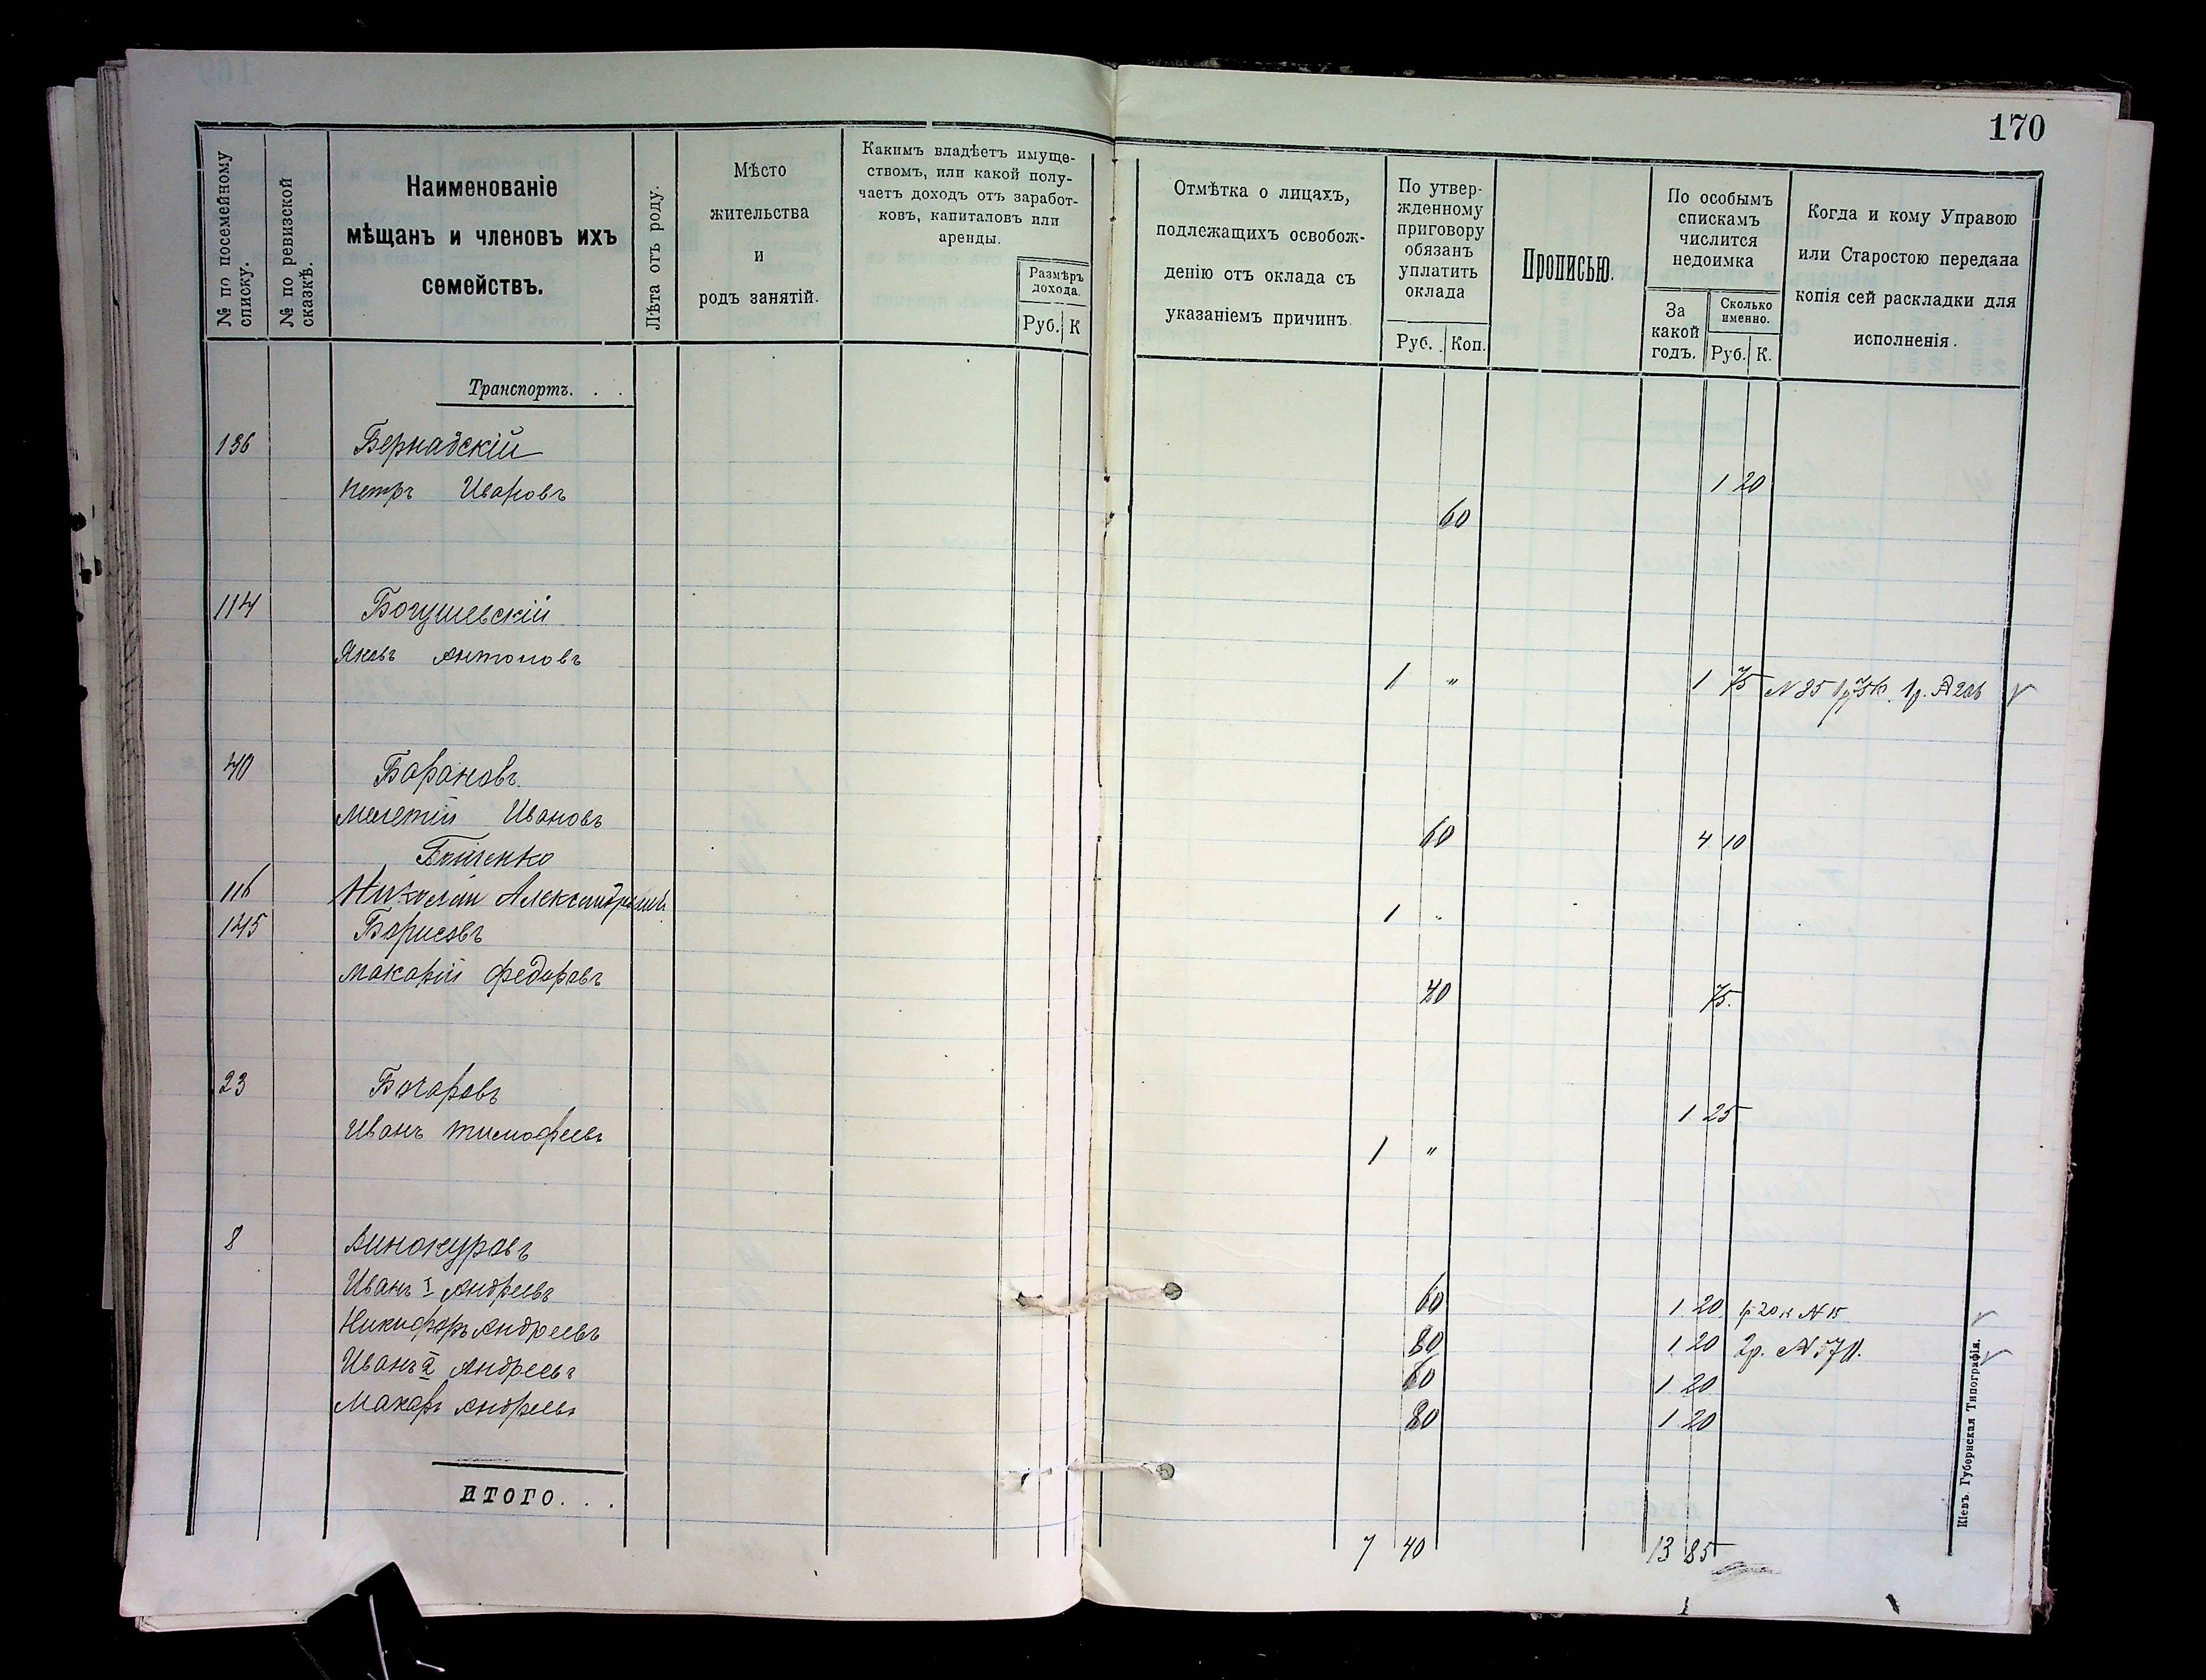 170
№ по посемейному списку.
№ по ревизской сказкѣ.
Наименованіе
мѣщанъ и членовъ ихъ
семействъ.
Лѣта отъ роду.
Мѣсто
жительства
и
родъ занятій.
Какимъ владѣетъ имуще-
ствомъ, или какой полу-
чаетъ доходъ отъ заработ-
ковъ, капиталовъ или
аренды.
Размѣръ
дохода.
Руб. К
Отмѣтка о лицахъ,
подлежащихъ освобож-
денію отъ оклада съ
указаніемъ причинъ.
По утвер-
жденному
приговору
обязанъ
уплатить
оклада
Руб. Коп.
Прописью.
По особымъ
спискамъ
числится
недоимка
За
какой
годъ.
Сколько
именно.
Руб. К.
Когда и кому Управою
или Старостою передана
копія сей раскладки для
исполненія.
Транспортъ. . .
136 Бернадскій
Петръ Ивановъ 1 20
60
114 Богушевскій
Яковъ Антоновъ 1 " 1 75 N 85 1р 75 к. 1р.
40 Барановъ
Мелетій Ивановъ 60 4 10
116 Николай Александровичъ 1 "
145 Борисовъ
Макарій Федоровъ 40 75
23 Бочаровъ
1 25
Иванъ Тимофеевъ 1 "
8 Винокуровъ
Иванъ I Андреевъ 60 1 20 1р 20 к N 15
Никифоръ Андреевъ 80 1 20 2р. N 570.
Иванъ II Андреевъ 60 1 20
Макаръ Андреевъ 80 1 20
ИТОГО. . .
7 40 13 85
Кіевъ. Губернская Типографія.